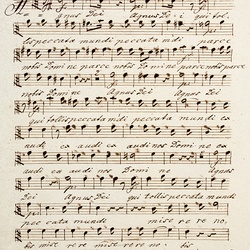 Agnus Dei Agnus Dei qui tol
lis peccata mundi peccata mundi parce
nobis Domine parce nobis Domine parce nobis parce
nobis Domine Agnus Dei Agnus Dei
qui tollis peccata mundi peccata mundi ex
audi ex audi ex audi nos Domine ex
audi ex audi nos Domine
Agnus Dei Agnus Dei qui tollis peccata mundi
peccata mundi miserere no,
bis miserere miserere no, bis